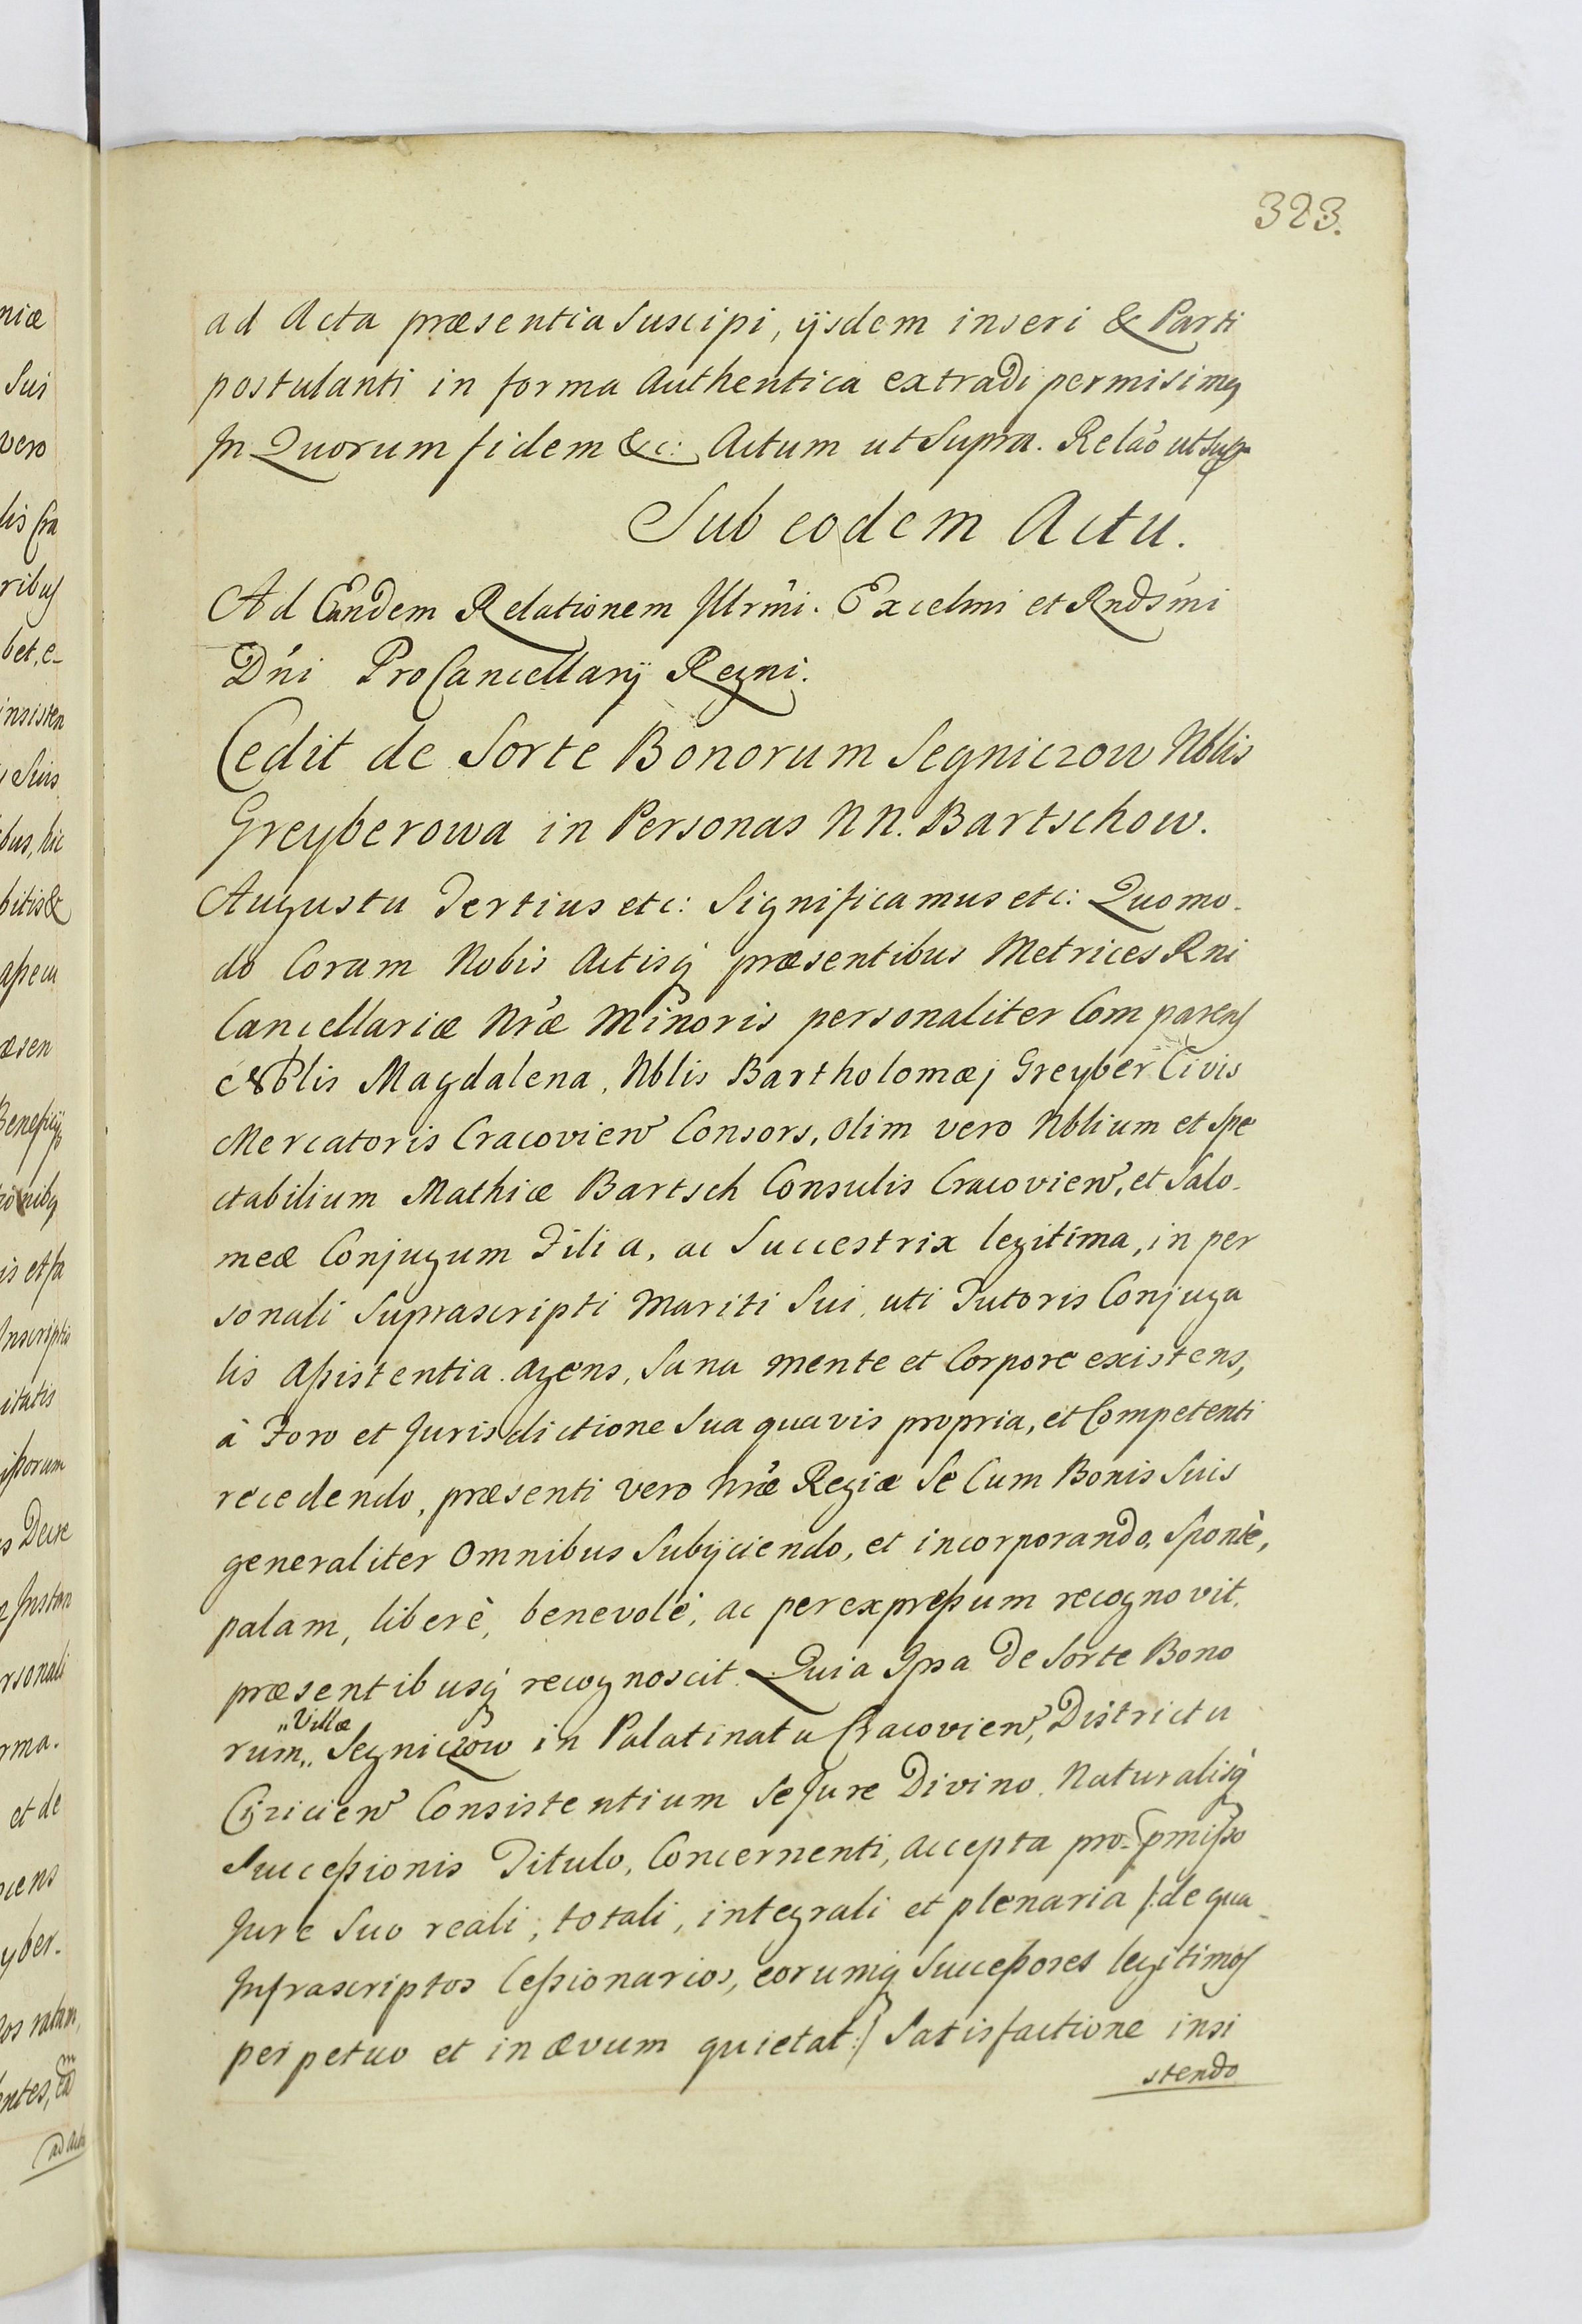 323.
niæ
Sui
vero
lis Cra
ribus
bet, e-
insisten
Suis
bus, hic
bitis &
assecu
æsen
Beneficijs
is et fa
Inscriptis
itatis
issorum
s Decre
Instan
rsonali
rma.
et de
ciens
yber.
os ratam,
entes, eã
ad Acta
ad Acta præsentia Suscipi, ijsdem inseri & Parti
postulanti in forma Authentica extradi permisimq
In Quorum fidem &c: Actum ut Supra. Relão ut Sup
Sub eodem Actu.
Ad Eandem Relationem Illrm̃i. Excelm̃i et Rnds̃mi
Dñi ProCancellarij Regni.
Cedit de Sorte Bonorum Segniczow Nblis
Greyberowa in Personas NN. Bartschow.
Augustu Tertius etc: Significamus etc: Quomo-
do Coram Nobis Actisq́ præsentibus Metrices Rni
Cancellariæ Nrǽ Minoris personaliter Comparens
Nblis Magdalena, Nblis Bartholomæj Greyber Civis
Mercatoris Cracovien̄ Consors, olim vero Nblium et Spe
ctabilium Mathiæ Bartsch Consulis Cracovien̄, et Salo-
meæ Conjugum Filia, ac Succestrix legitima, in per
sonali Suprascripti Mariti Sui, uti Tutoris Conjuga
lis Assistentia agens, Sana mente et Corpore existens,
à Foro et Jurisdictione Sua quavis propria, et Competenti
recedendo, præsenti vero Nrǽ Regiæ Se Cum Bonis Suis
generaliter Omnibus Subijciendo, et incorporando, Spontè,
palam, liberè, benevolè, ac per expressum recognovit,
præsentibusq́ recognoscit. Quia Ipsa De Sorte Bono
„Villæ
rum„ Segniczow in Palatinatu Cracovien̄, Districtu
Czicien̄ Consistentium Se Jure Divino, Naturalisq́
Successionis Titulo, Concernenti, accepta pro p̱misso
Jure Suo reali, totali, integrali et plenaria /: de qua
Infrascriptos Cessionarios, eorumq́ Successores legitimos
perpetuo et in ævum quietat :/ Satisfactione insi
stendo